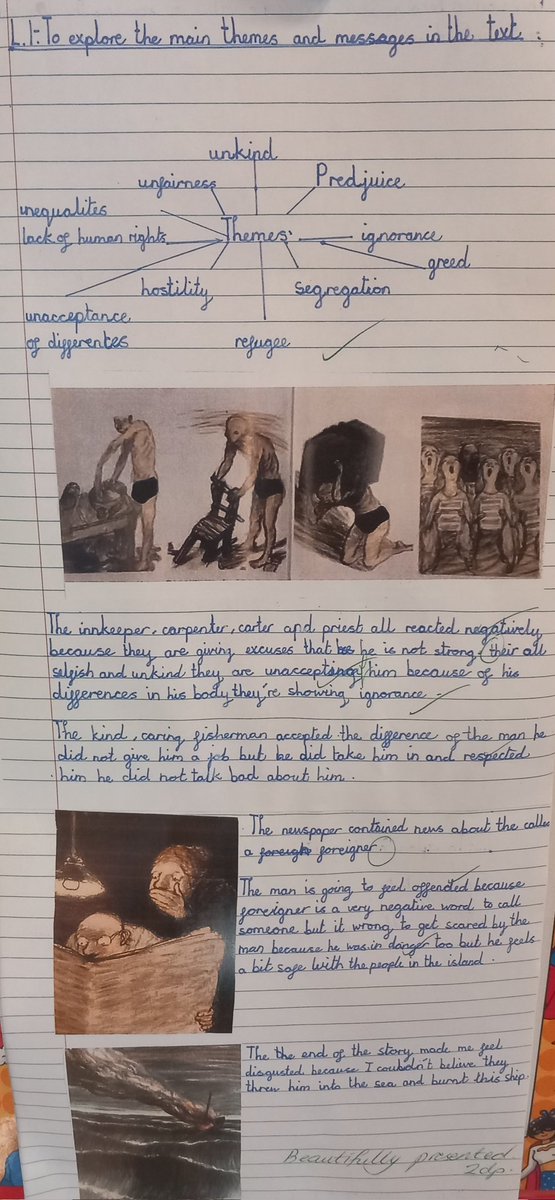 L.I: To explore the main themes and messages in the text.
unkind
unfairness
Predjuice
inequalites
lack of human rights
Themes:
ignorance
greed
hostility
segregation
unacceptance
of differentes
refugee
The innkeeper, carpenter, carter and priest all reacted negatively
because they are giving excuses that he is not strong, their all
selgish and unkind they are him because of his
differences in his body, they're showing ignorance.
The kind, caring, fisherman accepted the difference of the man he
did not give him a job but he did take him in and respected
him he did not talk bad about him.
The newspaper contained news about the
a foreigner.
The man is going to feel offended because
foreigner is a very negative word to call
someone but it wrong to get scared by the
man because he was in danger too but he feels
a bit safe with the people in the island.
The the end of the story made me feel
disgusted because I couldn't believe they
threw him into the sea and burnt this ship.
Beautifully presented
2dp.